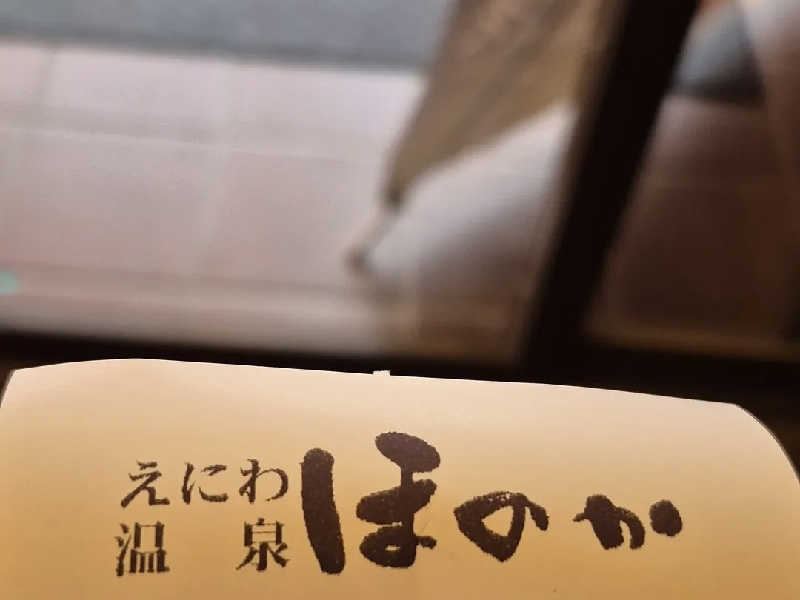 えにわ
温泉
ほのか